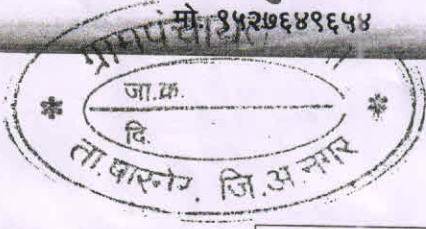 मो. ९५२७६४९६५४
ग्रामपंचायत
जा.क्र.
दि.
ता.पारनेर. जि.अ.नगर